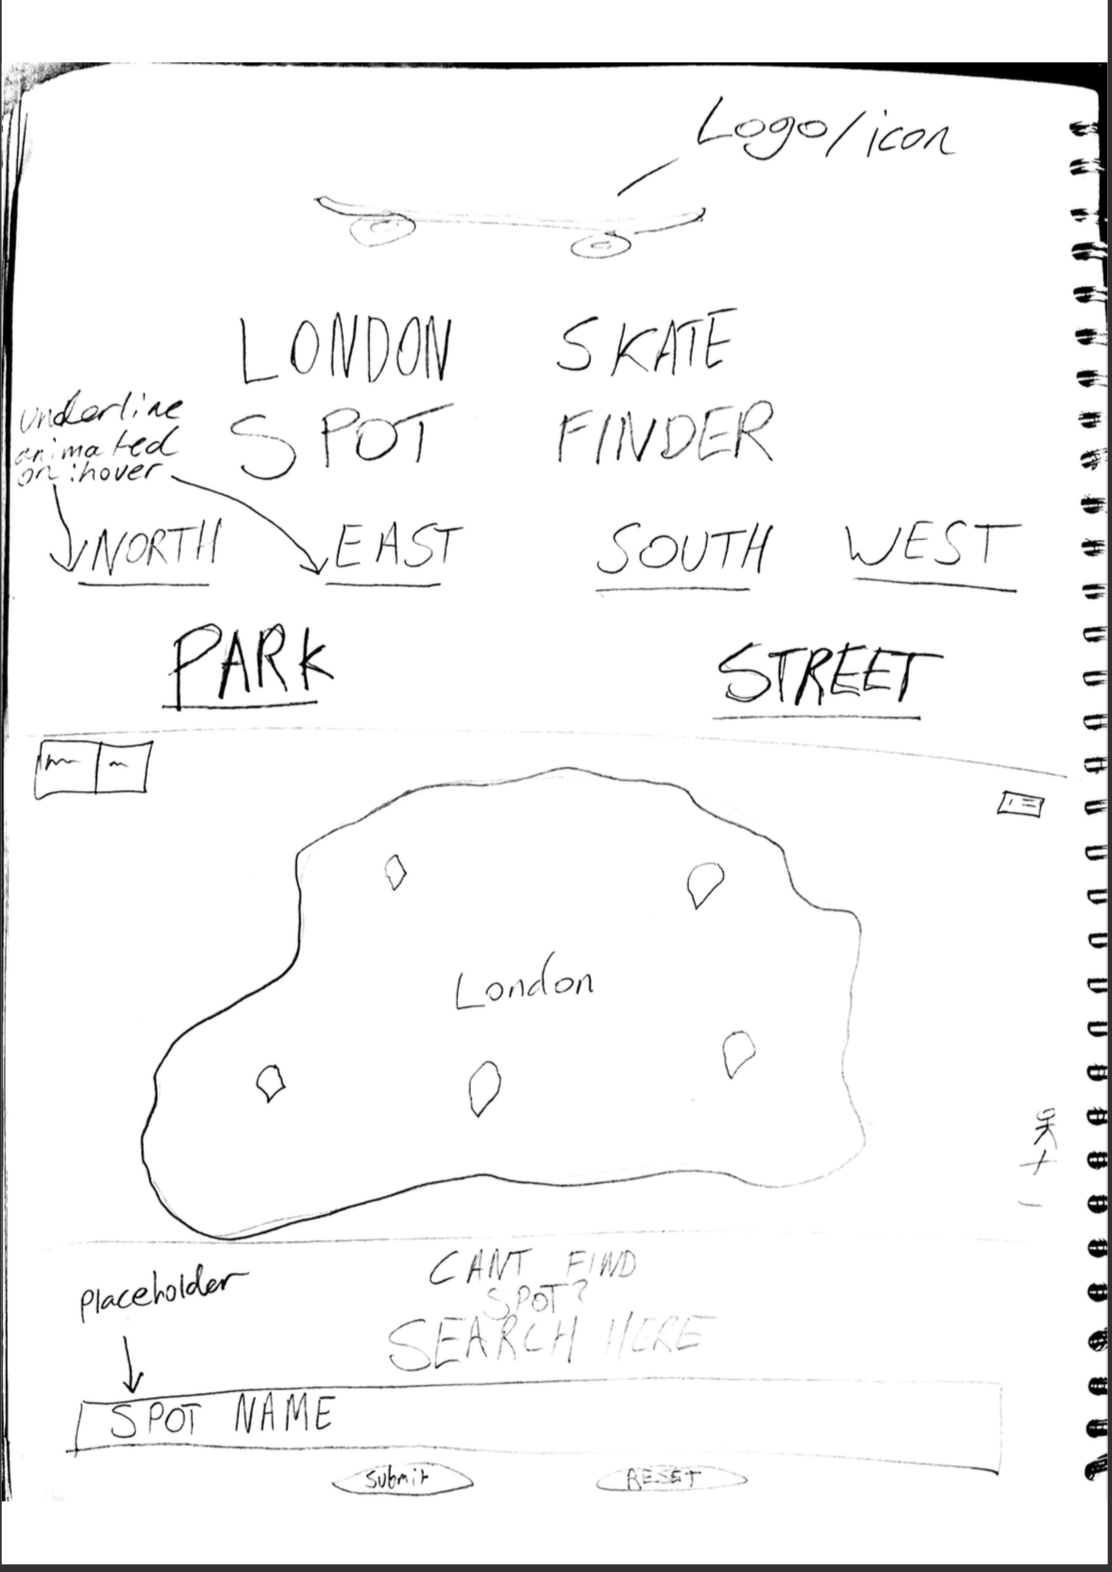 Logo/icon
LONDON SKATE
SPOT FINDER
underline
animated
on :hover
NORTH EAST SOUTH WEST
PARK STREET
London
CANT FIND
SPOT?
SEARCH HERE
placeholder
SPOT NAME
Submit RESET